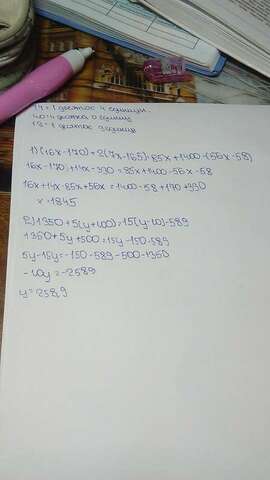 14 = 1 десяток 4 единицы.
40=4 десятка 0 единиц
13=1 десяток 3 единиц
1) (16x-170)+2(7x-165)=85x+1400-(56x-58)
16x-170+14x-330=85x+1400-56x-58
16x+14x-85x+56x=1400-58+170+330
x=1845
2) 1350+5(y+100)=15(y-10)-589
1350+5y+500=15y-150-589
5y-15y=-150-589-500-1350
-10y=-2589
y=258,9